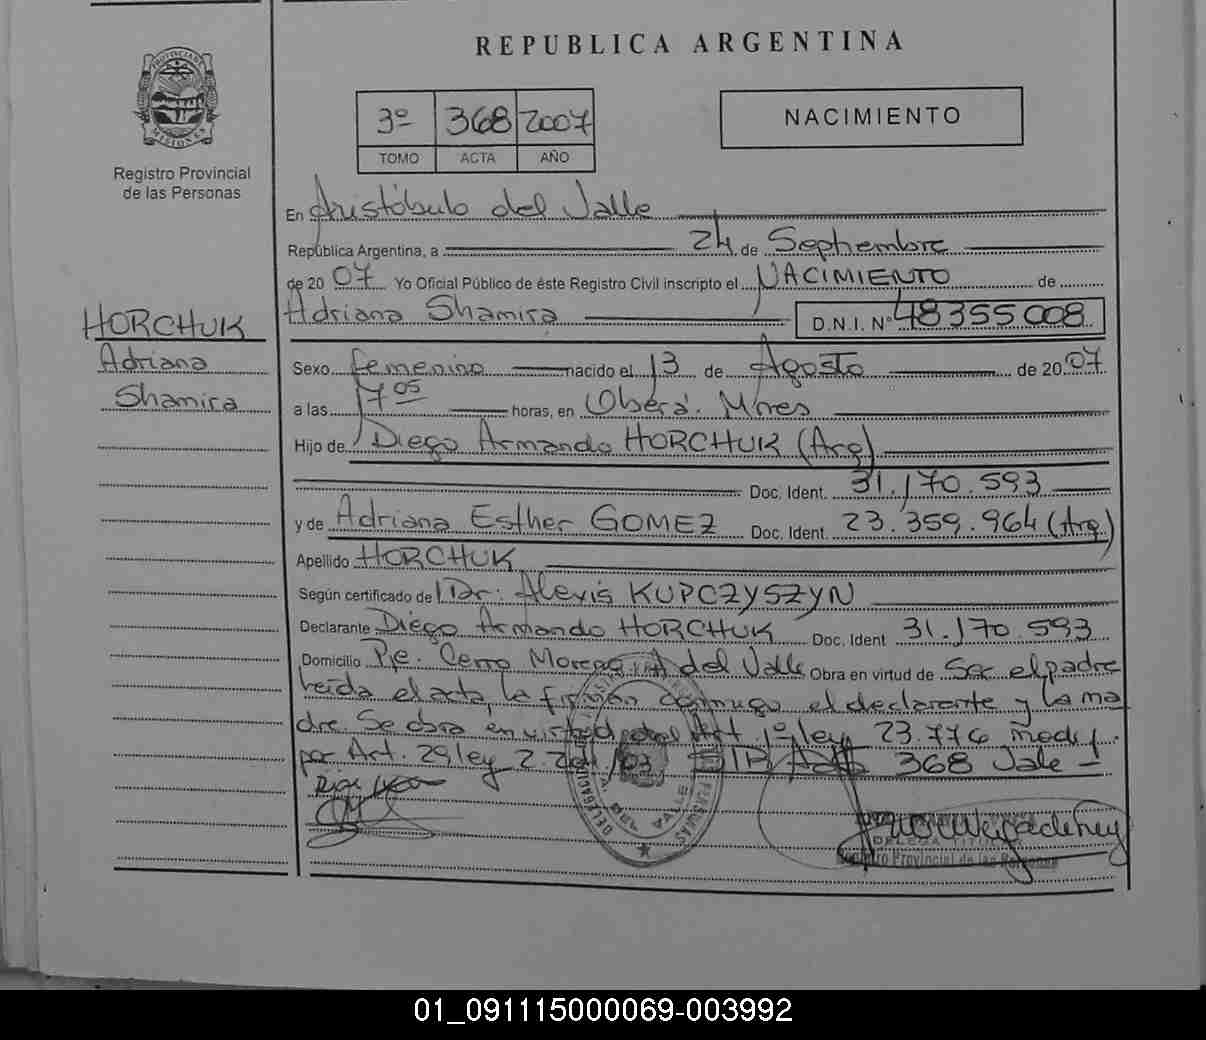 REPUBLICA ARGENTINA
PROVINCIA DE MISIONES
Registro Provincial
de las Personas
3º 368 2007
TOMO ACTA AÑO
NACIMIENTO
HORCHUK
Adriana
Shamira
En Aristóbulo del Valle
República Argentina, a 24 de Septiembre
de 20 07 Yo Oficial Público de éste Registro Civil inscripto el NACIMIENTO de
Adriana Shamira D.N.I. Nº 48355008
Sexo femenino nacido el 13 de Agosto de 20 07
a las 17 05 horas, en Oberá. M'nes
Hijo de Diego Armando HORCHUK (Arg)
Doc. Ident. 31.170.593
y de Adriana Esther GOMEZ Doc. Ident. 23.359.964 (Arg)
Apellido HORCHUK
Según certificado de Dr: Alexis KUPCZYSZYN
Declarante Diego Armando HORCHUK Doc. Ident 31.170.593
Domicilio Pje. Cerro Moreno A del Valle Obra en virtud de Ser el padre
leída el acta, la firman conmigo el declarante y la ma
dre. Se obra en virtud del Art. 1º ley 23.776 modf.
por Art. 29 ley 2.
368 Vale
Registro Provincial de las Personas
01_091115000069-003992